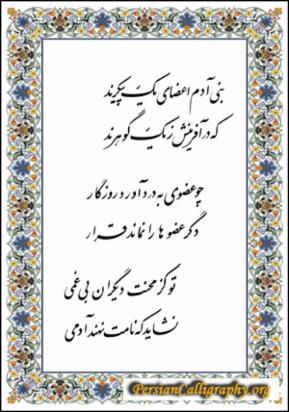 بنی آدم اعضای یک پیکرند
که در آفرینش ز یک گوهرند
چو عضوی به درد آورد روزگار
دگر عضوها را نماند قرار
تو کز محنت دیگران بی غمی
نشاید که نامت نهند آدمی
PersianCalligraphy.org